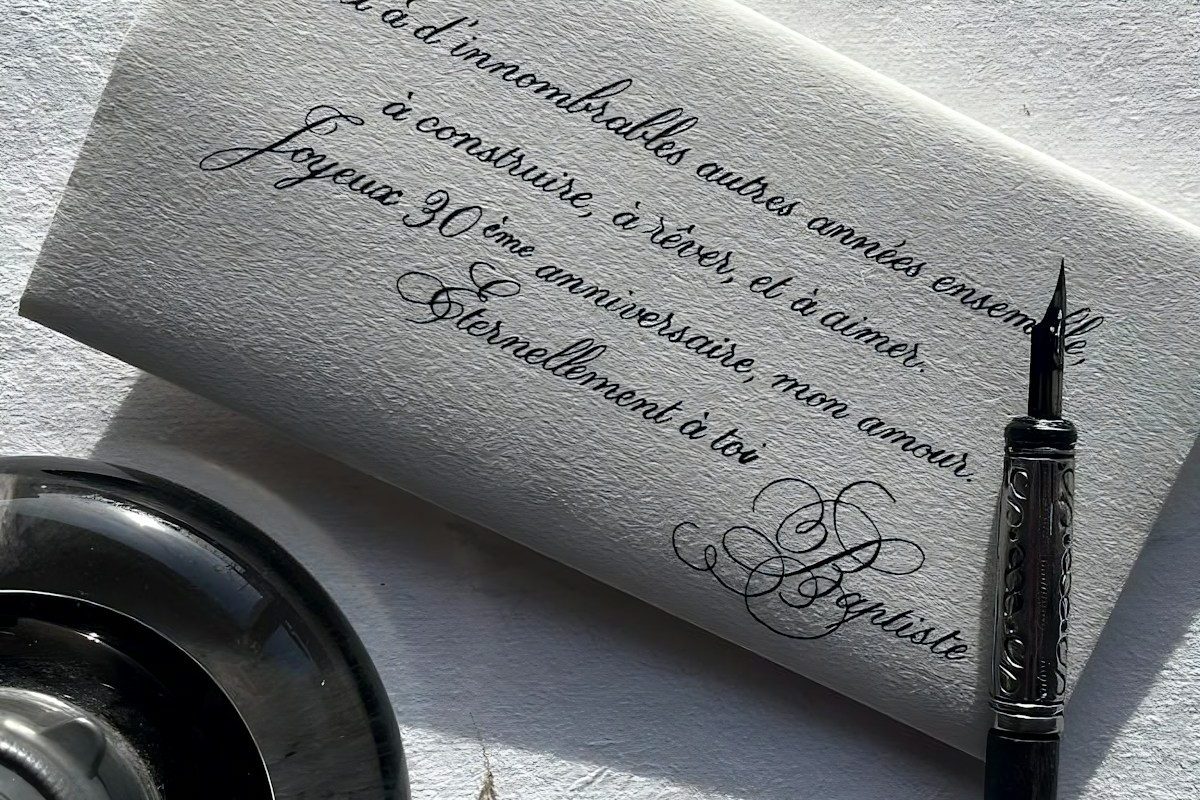 à d'innombrables autres années ensemble,
à construire, à rêver, et à aimer.
Joyeux 30ème anniversaire, mon amour.
Éternellement à toi
Baptiste